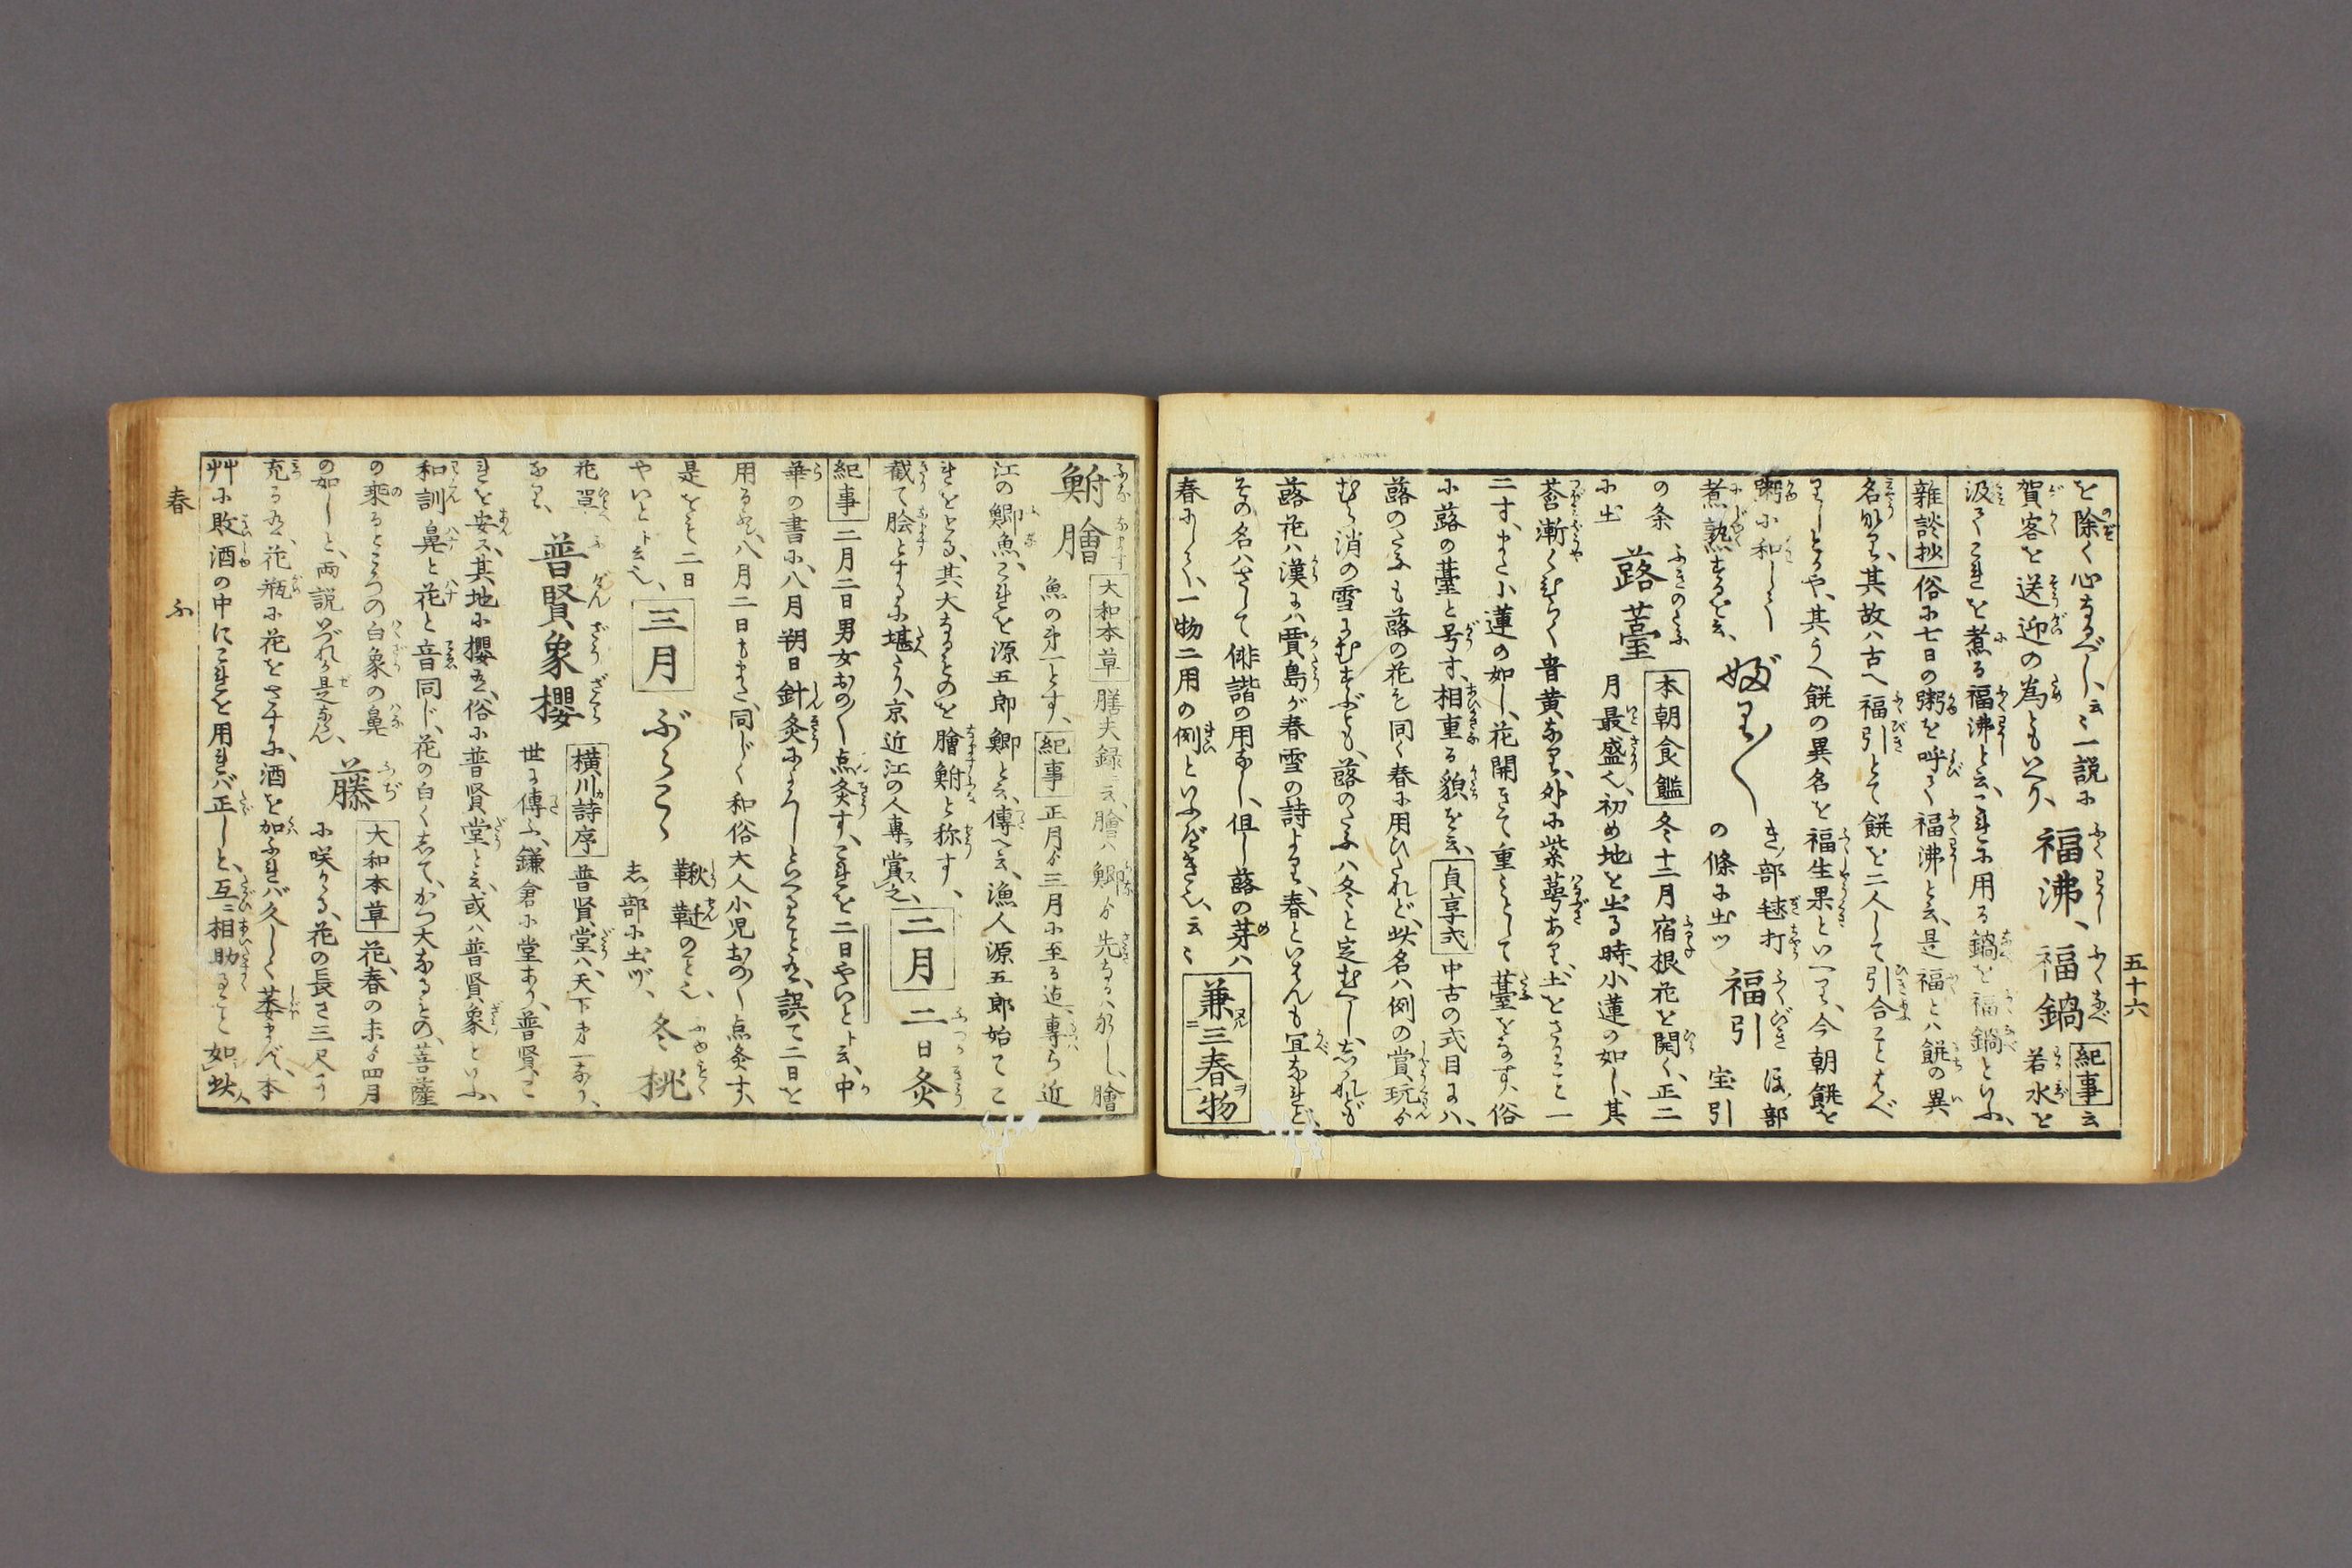 五十六
を除く心なるべし、云云一説に
賀客を送迎の為ともいへり、福沸、福鍋 紀事 云
若水を
汲てこれを煮る福沸と云、これに用る鍋を福鍋といふ、
雑談抄 俗に七日の粥を呼て福沸と云、是福とハ餅の異
名なり、其故ハ古へ福引とて餅を二人して引合ことはべ
りしとかや、其うへ餅の異名を福生果といへり、今朝餅を
粥に和して
煮熟するを云、
ほノ部
宝引
の条
に出
蕗薹 本朝食鑑 冬十二月宿根花を開く、正二
月最盛也、初め地を出る時、小蓮の如し、其
苍漸くむらく青黄なり、外に紫萼あり、土をさること一
二寸、また小蓮の如し、花開きて重々として薹をなす、俗
に蕗の薹と号す、相重る貌を云、貞享式 中古の式目にハ、
蕗のたふも蕗の花を同く春に用ひたれど、此名ハ例の賞玩より
むら消の雪にむすぶとも、蕗のたふハ冬と定むべし、しかれども
蕗花ハ漢にハ賈島が春雪の詩より、春といはんも宜なれど、
その名ハさして俳諧の用なし、但し蕗の芽ハ
春にして、一物二用の例といふべきや、云云 兼三春物
鮒膾 大和本草 膳夫録ニ云、膾ハ鯽より先なるハなし、膾
魚の第一とす、紀事 正月より三月に至る迠、専ら近
江の鯽魚、これを源五郎鯽と云、傳へ云、漁人源五郎始てこ
れをとる、其大なるものを膾鮒と称す、
截て膾とするに堪たり、京近江の人専ラ賞之、二月 二日灸
紀事 二月二日男女おの〱点灸す、これを二日やいとゝ云、中
華の書に、八月朔日針灸によろしといへることあり、誤て二日を
用るか、八月二日もまた、同じく和俗大人小児おの〱点灸す、
是をも二日
やいとゝ云也、三月 ぶらこゝ 鞦韆のこと也、
志ノ部に出ヅ、冬桃
花単
なり、普賢象櫻 横川詩序 普賢堂ハ、天下第一なり、
世に傳ふ、鎌倉に堂あり、普賢こ
れを安ス、其地に櫻あり、俗に普賢堂と云、或ハ普賢象といふ、
和訓鼻と花と音同じ、花の白くして、かつ大なるもの、菩薩
の乗るところの白象の鼻
の如しと、両説いづれか是ならん、藤 大和本草 花、春の末より四月
に咲かゝる、花の長さ三尺
充るあり、花瓶に花をさすに、酒を加ふれバ久しく萎まず、本
艸に敗酒の中にこれを用れバ正しと、互ニ相助ること如此、
春 ふ